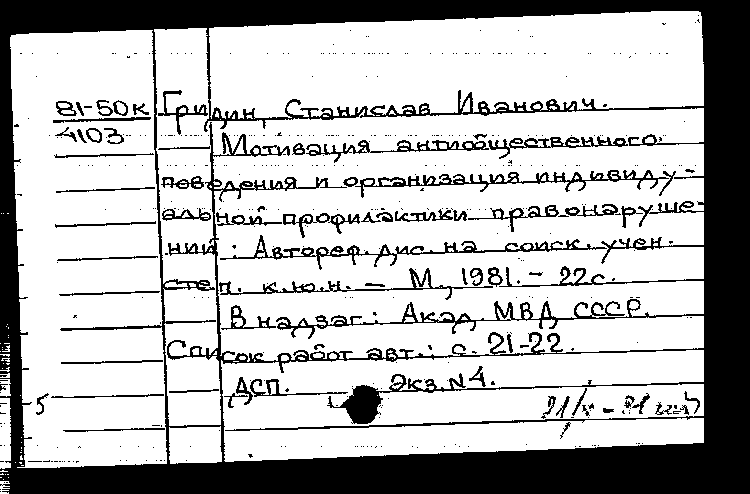 81-50к Гридин, Станислав Иванович.
4103 Мотивация антиобщественного
поведения и организация индивиду-
альной профилактики правонаруше-
ний: Автореф. дис. на соиск. учен.
степ. к.ю.н. – М., 1981. – 22с.
В надзаг.: Акад. МВД СССР.
Список работ авт.: с. 21-22.
ДСП. Экз. N4.
5